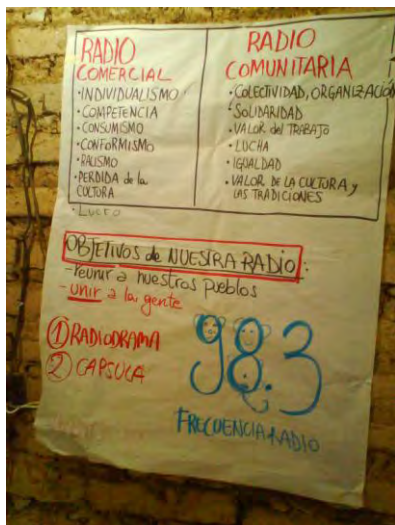 RADIO
COMERCIAL
• INDIVIDUALISMO
• COMPETENCIA
• CONSUMISMO
• CONFORMISMO
• RACISMO
• PERDIDA de la
CULTURA
• Lucro
RADIO
COMUNITARIA
• COLECTIVIDAD, ORGANIZACIÓN
• SOLIDARIDAD
• VALOR del TRABAJO
• LUCHA
• IGUALDAD
• VALOR DE LA CULTURA y
LAS TRADICIONES
OBJETIVOS de NUESTRA RADIO:
- reunir a nuestros pueblos
- unir a la gente
1 RADIODRAMA
2 CAPSULA
98.3
FRECUENCIA RADIO